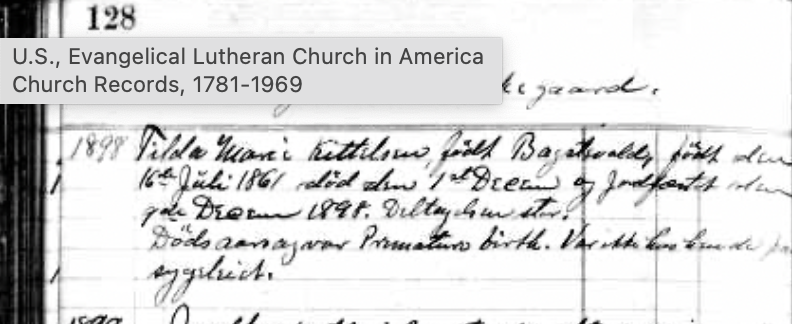 128
U.S., Evangelical Lutheran Church in America
Church Records, 1781-1969
1898 Tilda Marie Kittelsen, født født den
1 16de Juli 1861 død den 1st Decem og Jordfæstet den
Decem 1898. Deltagelsen stor.
Dödsaarsag var Premature birth. Var ikke hos hende
1 sygeleiet.